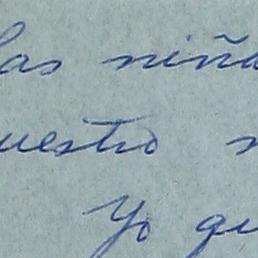 las niña
uestro n
Yo qu